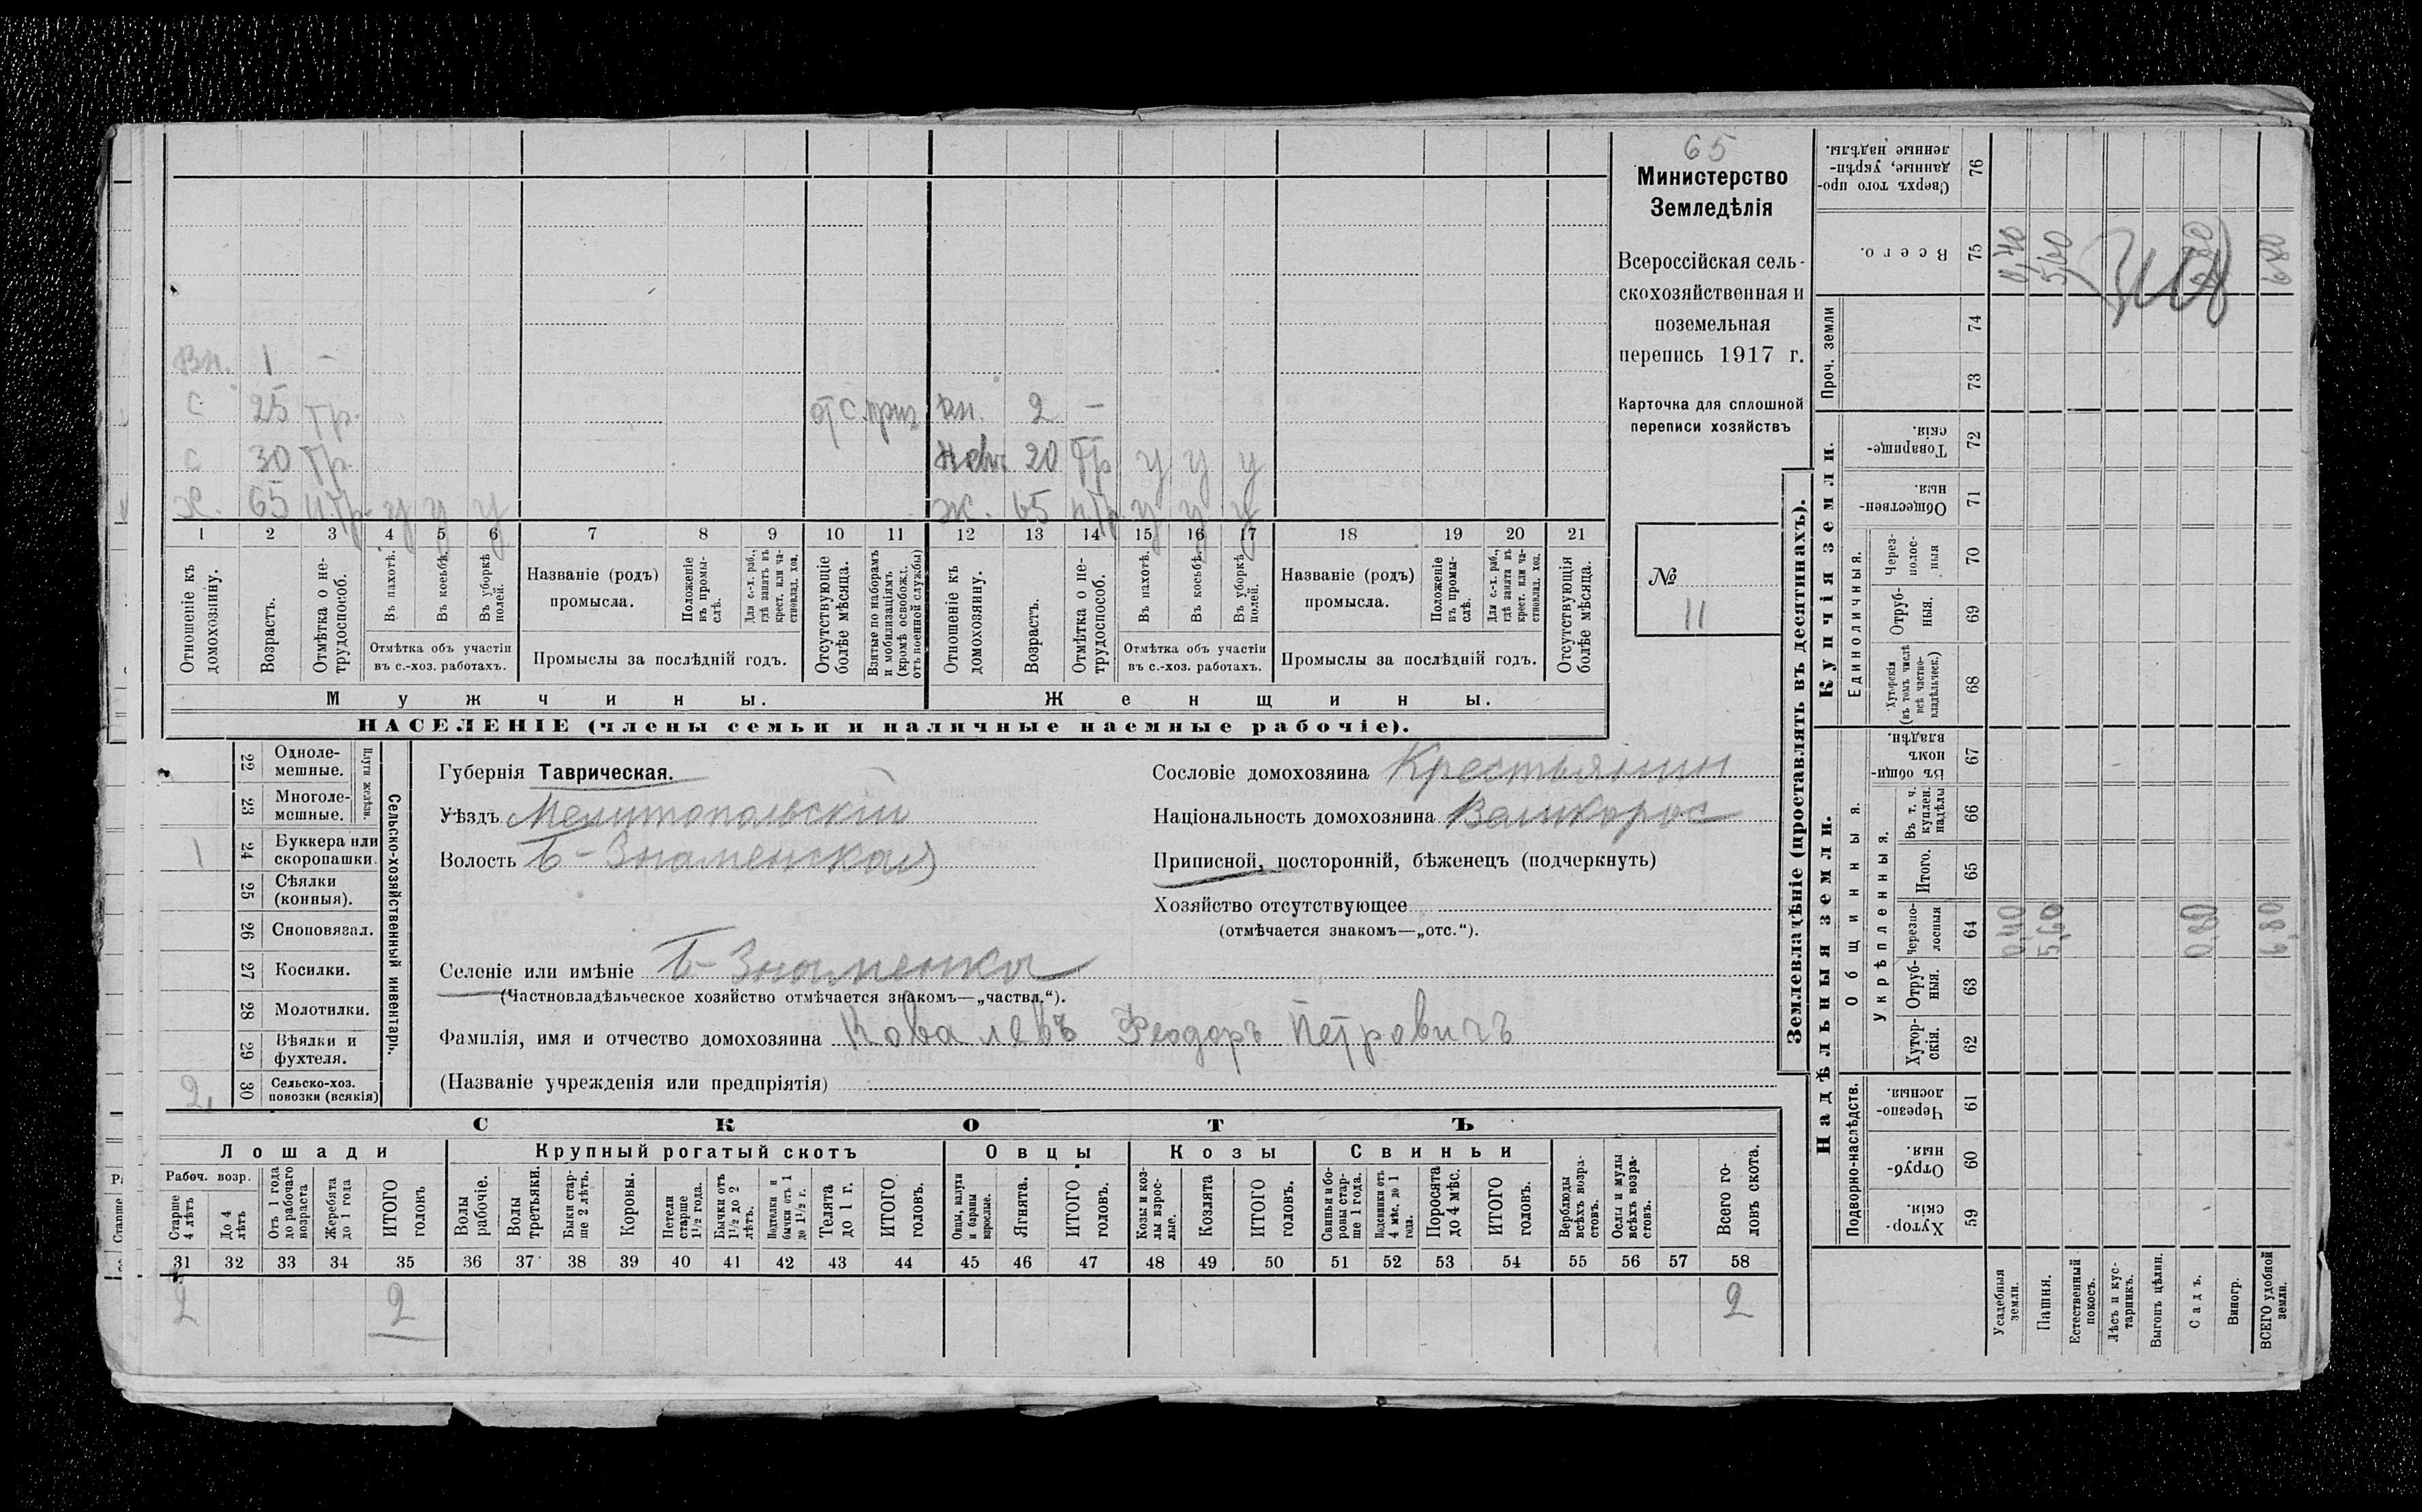 65
Министерство
Земледѣлія
Всероссійская сель-
скохозяйственная и
поземельная
перепись 1917 г.
Карточка для сплошной
переписи хозяйствъ
№
11
Вн. 1 -
с 25 тр. отс. приз. вн. 2 -
с 30 тр. Нев. 20 тр у у у
Х. 65 н.тр. у у у ж. 65 н.тр у у у
1 2 3 4 5 6 7 8 9 10 11 12 13 14 15 16 17 18 19 20 21
Отношеніе къ домохозяину.
Возрастъ.
Отмѣтка о не-трудоспособ.
Въ пахотѣ.
Въ косьбѣ.
Въ уборкѣ полей.
Отмѣтка объ участіи въ с.-хоз. работахъ.
Названіе (родъ) промысла.
Положеніе въ промы-слѣ.
Для с.-х. раб., гдѣ занятъ въ крест. или ча-стновлад. хоз.
Промыслы за послѣдній годъ.
Отсутствующіе болѣе мѣсяца.
Взятые по наборамъ и мобилизаціямъ (кромѣ освобожд. отъ военной службы)
Отношеніе къ домохозяину.
Возрастъ.
Отмѣтка о не-трудоспособ.
Въ пахотѣ.
Въ косьбѣ.
Въ уборкѣ полей.
Отмѣтка объ участіи въ с.-хоз. работахъ.
Названіе (родъ) промысла.
Положеніе въ промы-слѣ.
Для с.-х. раб., гдѣ занята въ крест. или ча-стновлад. хоз.
Промыслы за послѣдній годъ.
Отсутствующія болѣе мѣсяца.
Мужчины. Женщины.
НАСЕЛЕНІЕ (члены семьи и наличные наемные рабочіе).
22 Одноле-мешные.
23 Многоле-мешные.
Плуги желѣзн.
1 24 Буккера или скоропашки.
25 Сѣялки (конныя).
26 Сноповязал.
27 Косилки.
28 Молотилки.
29 Вѣялки и фухтеля.
2 30 Сельско-хоз. повозки (всякія)
Сельско-хозяйственный инвентарь.
Губернія Таврическая.
Уѣздъ Мелитопольскій
Волость Б-Знаменская
Селеніе или имѣніе Б-Знаменка
(Частновладѣльческое хозяйство отмѣчается знакомъ—„частвл.“).
Фамилія, имя и отчество домохозяина Ковалевъ Феодоръ Петровичъ
(Названіе учрежденія или предпріятія)
Сословіе домохозяина Крестьянин
Національность домохозяина Великорос
Приписной, посторонній, бѣженецъ (подчеркнуть)
Хозяйство отсутствующее
(отмѣчается знакомъ—„отс.“).
СКОТЪ
Лошади Крупный рогатый скотъ Овцы Козы Свиньи
Рабоч. возр.
Старше 4 лѣтъ
До 4 лѣтъ
Отъ 1 года до рабочаго возраста
Жеребята до 1 года
ИТОГО головъ
Волы рабочіе.
Волы третьяки.
Быки стар-ше 2 лѣтъ.
Коровы.
Нетели старше 1½ года.
Бычки отъ 1½ до 2 лѣтъ.
Подтелки и бычки отъ 1 до 1½ г.
Телята до 1 г.
ИТОГО головъ.
Овцы, валухи и бараны взрослые.
Ягнята.
ИТОГО головъ.
Козы и коз-лы взрос-лые.
Козлята
ИТОГО головъ.
Свиньи и бо-ровы стар-ше 1 года.
Подсвинки отъ 4 мѣс. до 1 года.
Поросята до 4 мѣс.
ИТОГО головъ.
Верблюды всѣхъ возра-стовъ.
Ослы и мулы всѣхъ возра-стовъ.
Всего го-ловъ скота.
31 32 33 34 35 36 37 38 39 40 41 42 43 44 45 46 47 48 49 50 51 52 53 54 55 56 57 58
2 2 2
Землевладѣніе (проставлять въ десятинахъ).
Надѣльныя земли.
Купчія земли.
Проч. земли
Подворно-наслѣдств.
Общинныя.
Укрѣпленныя.
Единоличныя.
Хутор-скія. 59
Отруб-ныя. 60
Черезпо-лосныя. 61
Хутор-скія. 62
Отруб-ныя. 63
Черезпо-лосныя 64
Итого. 65
Въ т. ч. куплен. надѣлы 66
Въ общин-номъ владѣн. 67
Хуторскія (въ томъ числѣ всѣ частно-владѣльческ.) 68
Отруб-ныя. 69
Через-полос-ныя 70
Обществен-ныя. 71
Товарище-скія. 72
73
74
Всего. 75
Сверхъ того про-данные, укрѣп-ленные надѣлы. 76
Усадебныя земли. 0,40 0,40
Пашня. 5,60 5,60
Естественный покосъ.
Лѣсъ и кус-тарникъ.
Выгонъ цѣлин.
Садъ. 0,80 0,80
Виногр.
ВСЕГО удобной земли. 6,80 6,80